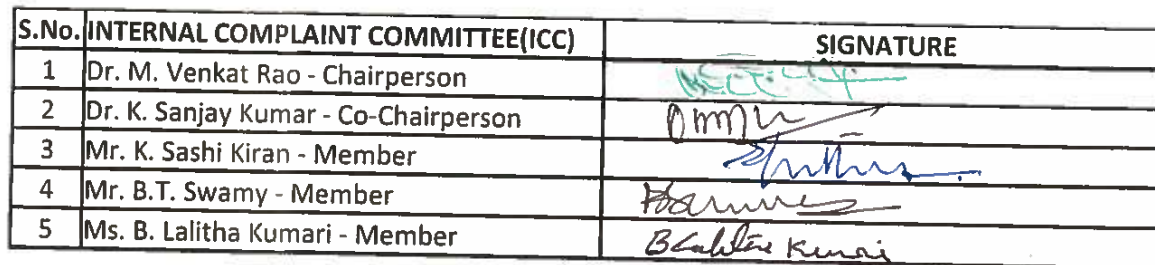 S.No. INTERNAL COMPLAINT COMMITTEE(ICC) SIGNATURE
1 Dr. M. Venkat Rao - Chairperson
2 Dr. K. Sanjay Kumar - Co-Chairperson
3 Mr. K. Sashi Kiran - Member
4 Mr. B.T. Swamy - Member
5 Ms. B. Lalitha Kumari - Member